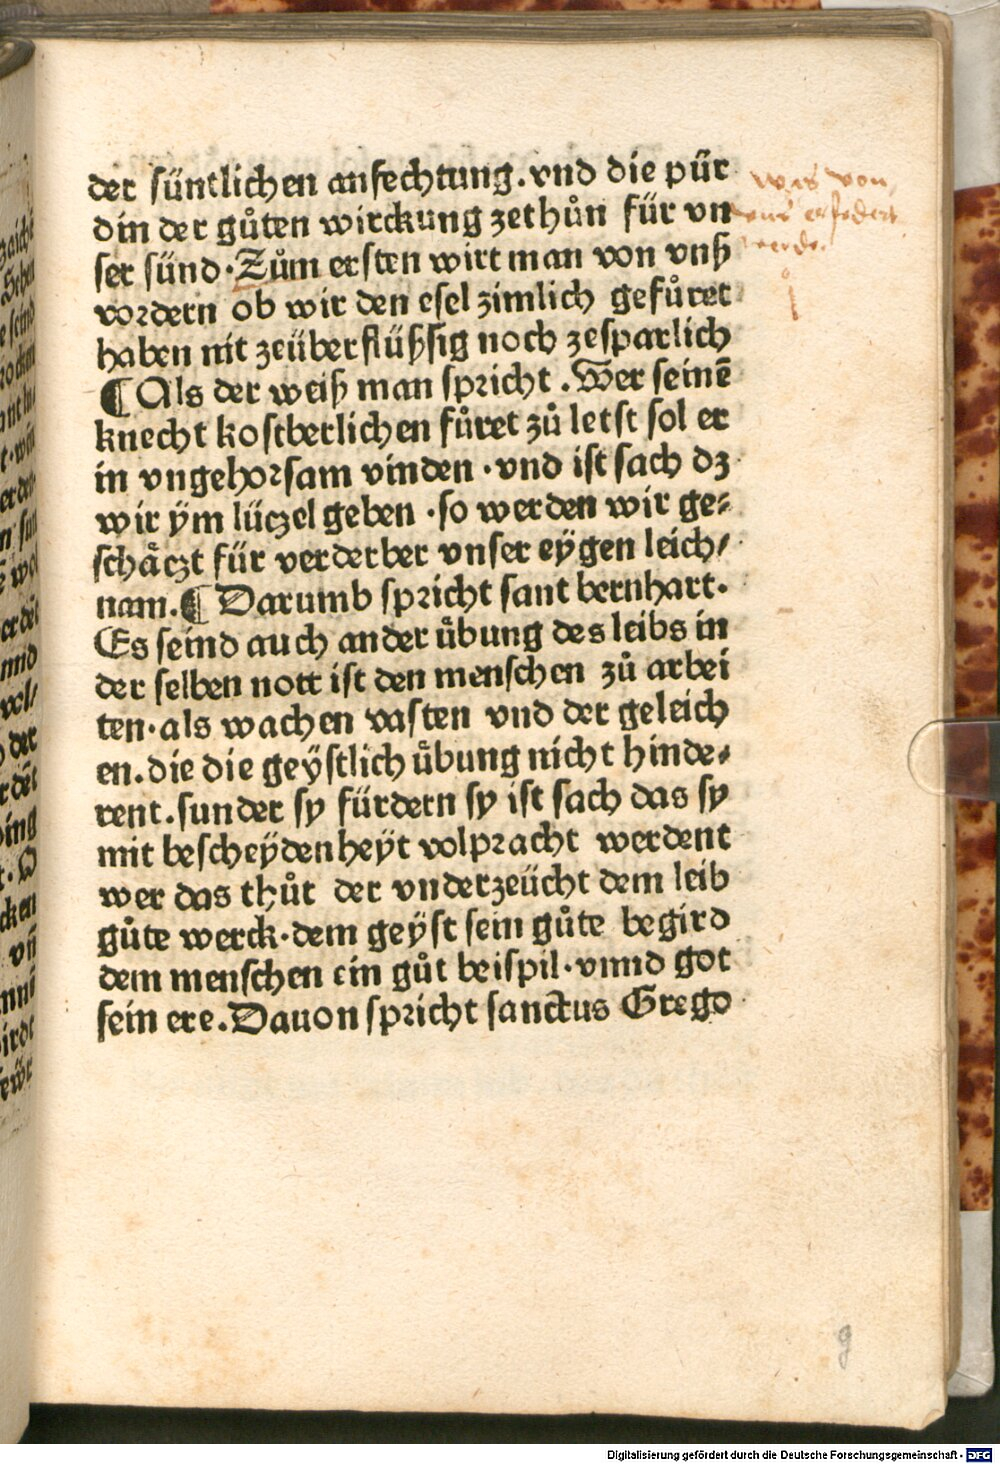 der süntlichen anfechtung. vnd die pür
din der gůten wirckung zethůn für vn
ser sünd. Zům ersten wirt man von vnß
vordern ob wir den esel zimlich gefůret
haben nit zeüberflüßsig noch zesparlich
¶ Als der weiß man spricht. Wer seinē
knecht kostberlichen fůret zů letst sol er
in vngehorsam vinden. vnd ist sach dz
wir ẏm lüczel geben. so werden wir ge⸗
schåczt für verderber vnser eẏgen leich/
nam. ¶ Darumb spricht sant bernhart.
Es seind auch ander ůbung des leibs in
der selben nott ist den menschen zů arbei
ten. als wachen vasten vnd der geleich
en. die die geẏstlich ůbung nicht hinde⸗
rent. sunder sy fürdern sy ist sach das sy
mit bescheẏdenheẏt volpracht werdent
wer das thůt der vnderzeücht dem leib
gůte werck. dem geẏst sein gůte begird
dem menschen ein gůt beispil. vnnd got
sein ere. Dauon spricht sanctus Grego
was von
erfodert
werde.
g
Digitalisierung gefördert durch die Deutsche Forschungsgemeinschaft - DFG